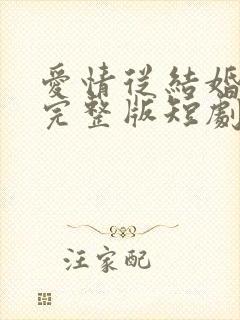 愛情從結婚
完整版短劇
汪家配